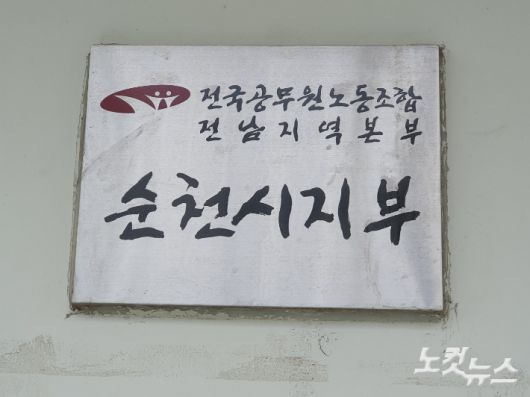 전국공무원노동조합
전남지역본부
순천시지부
노컷뉴스